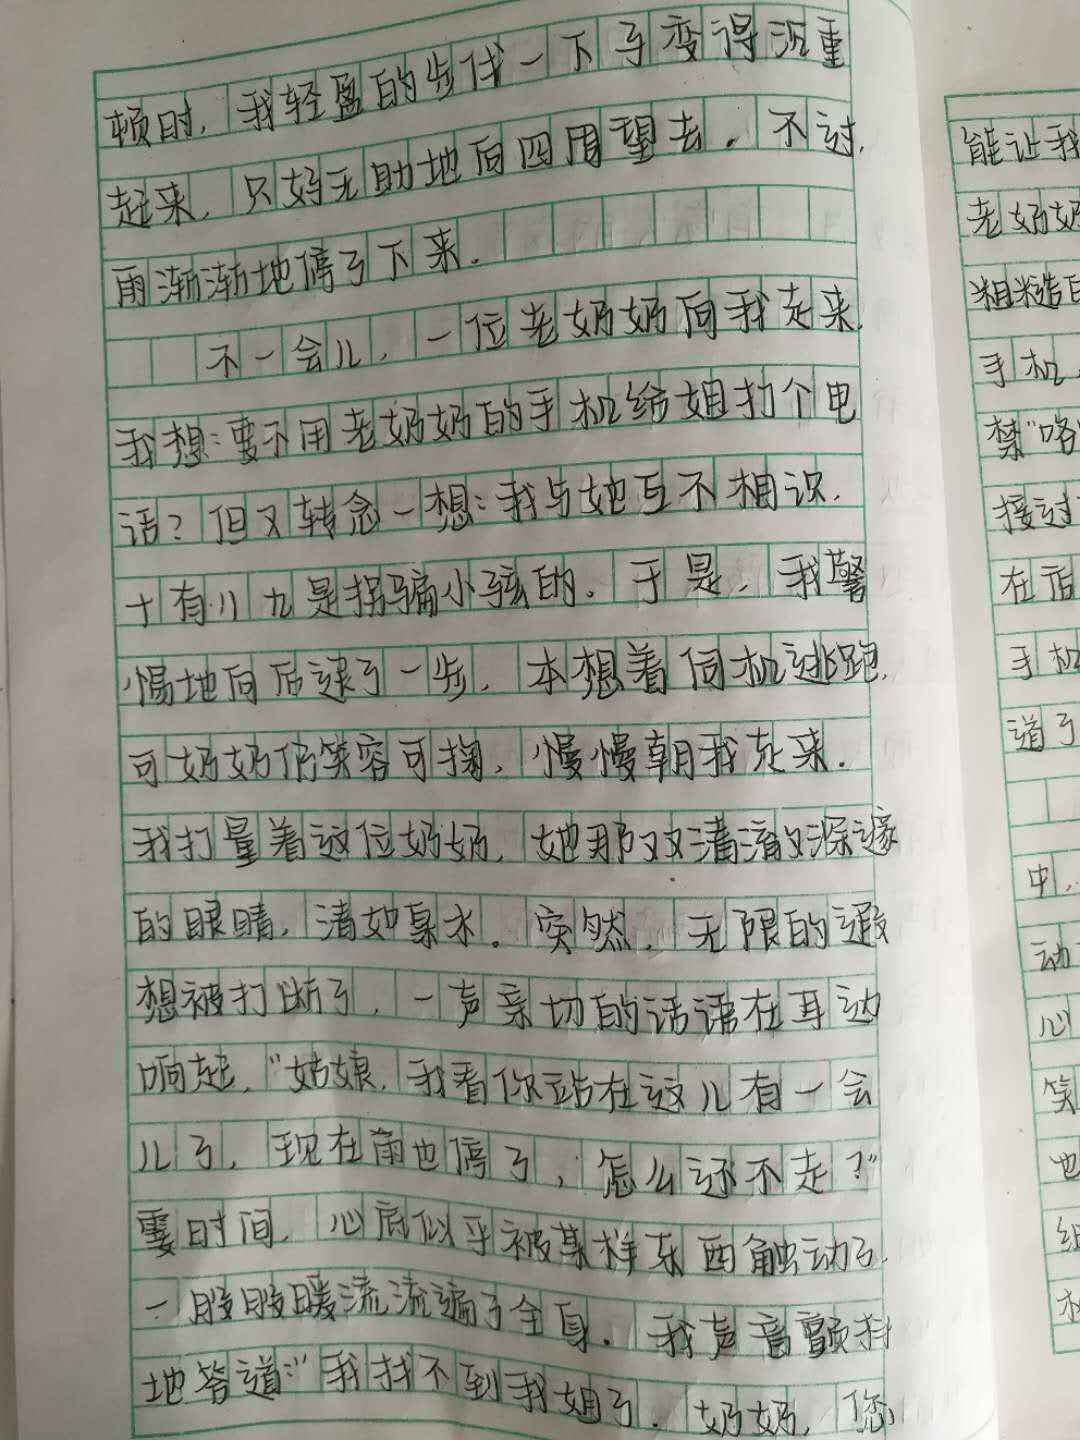 顿时,我轻盈的步伐一下子变得沉重
起来,只好无助地向四周望去。不过,
雨渐渐地停了下来。
不一会儿,一位老奶奶向我走来,
我想:要不用老奶奶的手机给姐打个电
话?但又转念一想:我与她互不相识,
十有八九是拐骗小孩的。于是,我警
惕地向后退了一步,本想着伺机逃跑,
可奶奶仍笑容可掬,慢慢朝我走来。
我打量着这位奶奶,她那双清澈又深邃
的眼睛,清如泉水。突然,无限的遐
想被打断了,一声亲切的话语在耳边
响起,"姑娘,我看你站在这儿有一会
儿了,现在雨也停了,怎么还不走?"
霎时间,心底似乎被某样东西触动了,
一股股暖流流遍了全身。我声音颤抖
地答道:"我找不到我姐了,奶奶,您
能让我
老奶奶
粗糙
手机
禁"咯
接过
在后
手机
道了
中,
动
心
笑
地